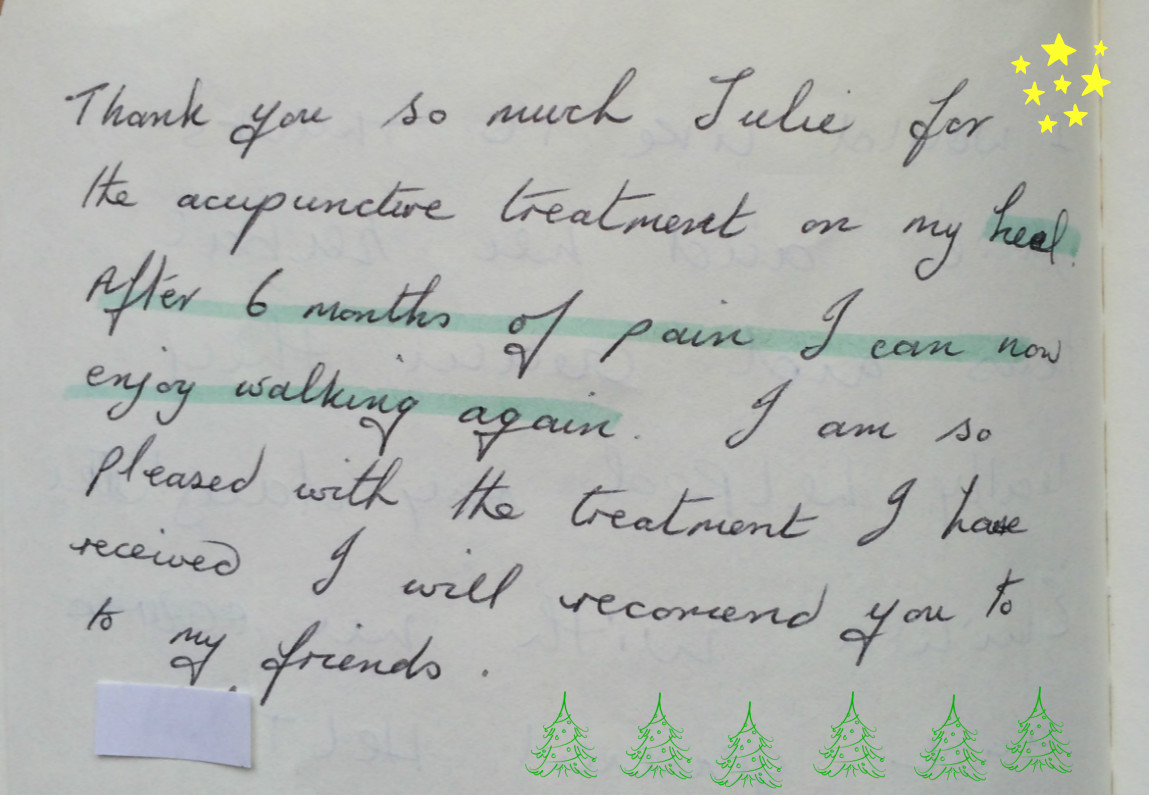 Thank you so much Julie for
the acupuncture treatment on my heel.
After 6 months of pain I can now
enjoy walking again. I am so
pleased with the treatment I have
received I will recomend you to
to my friends.